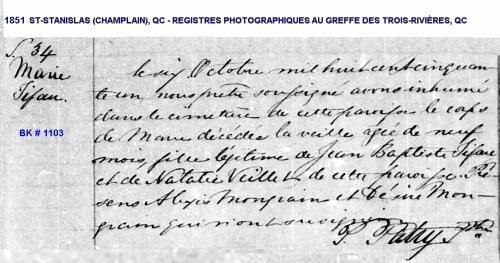 1851 ST-STANISLAS (CHAMPLAIN), QC - REGISTRES PHOTOGRAPHIQUES AU GREFFE DES TROIS-RIVIÈRES, QC
S. 34
Marie
Tifau.
BK # 1103
le six Octobre mil huit cent cinquan
te un, nous prêtre soussigné avons inhumé
dans le cimetière de cette paroisse le corps
de Marie décédée la veille agée de neuf
mois fille légitime de Jean Baptiste Tifau
et de Natalie Veillet de cette paroisse. Pré
sens Alexis Mongrain et Désiré Mon-
grain qui n'ont su signer
P. Patry Ptre